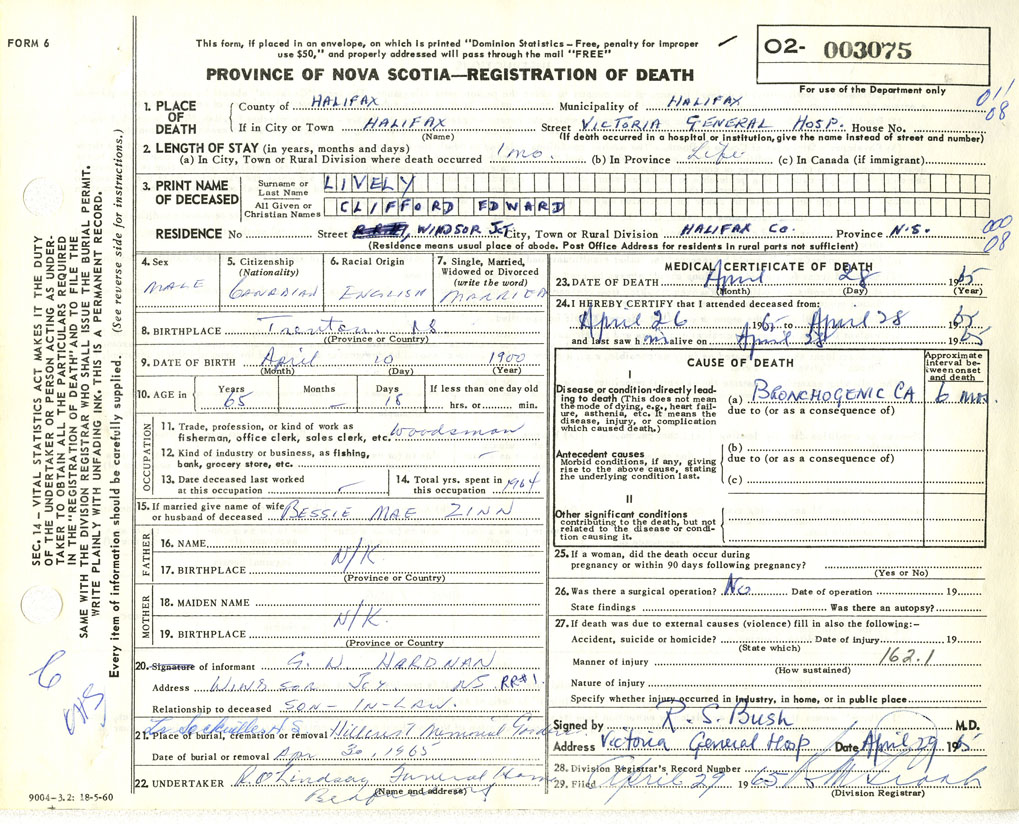 FORM 6
This form, if placed in an envelope, on which is printed "Dominion Statistics – Free, penalty for improper
use $50," and properly addressed will pass through the mail "FREE"
PROVINCE OF NOVA SCOTIA—REGISTRATION OF DEATH
O2- 003075
For use of the Department only
011
08
1. PLACE OF DEATH
County of HALIFAX Municipality of HALIFAX
If in City or Town HALIFAX Street VICTORIA GENERAL HOSP. House No.
(Name) (If death occurred in a hospital or institution, give the name instead of street and number)
2. LENGTH OF STAY (in years, months and days)
(a) In City, Town or Rural Division where death occurred 1 mo. (b) In Province Life (c) In Canada (if immigrant)
3. PRINT NAME OF DECEASED
Surname or Last Name LIVELY
All Given or Christian Names CLIFFORD EDWARD
RESIDENCE No Street WINDSOR JCT City, Town or Rural Division HALIFAX CO. Province N.S.
(Residence means usual place of abode. Post Office Address for residents in rural parts not sufficient)
000
08
4. Sex MALE
5. Citizenship (Nationality) CANADIAN
6. Racial Origin ENGLISH
7. Single, Married, Widowed or Divorced (write the word) MARRIED
8. BIRTHPLACE Trenton NS
(Province or Country)
9. DATE OF BIRTH April 10 1900
(Month) (Day) (Year)
10. AGE in Years 65 Months – Days 18 If less than one day old hrs. or min.
OCCUPATION
11. Trade, profession, or kind of work as
fisherman, office clerk, sales clerk, etc. Woodsman
12. Kind of industry or business, as fishing,
bank, grocery store, etc. –
13. Date deceased last worked
at this occupation –
14. Total yrs. spent in
this occupation 1964
15. If married give name of wife
or husband of deceased BESSIE MAE ZINN
FATHER
16. NAME
N/K
17. BIRTHPLACE
(Province or Country)
MOTHER
18. MAIDEN NAME
N/K.
19. BIRTHPLACE
(Province or Country
20. Signature of informant G. W HARDNAN
Address WINDSOR Jcy NS RR#1
Relationship to deceased SON-IN-LAW.
Sackville N.S
21. Place of burial, cremation or removal Hillcrest Memorial Gardens
Date of burial or removal Apr 30, 1965
22. UNDERTAKER Lindsay Funeral Home
(Name and address)
Bedford
9004-3.2: 18-5-60
MEDICAL CERTIFICATE OF DEATH
23. DATE OF DEATH April 28 1965
(Month) (Day) (Year)
24. I HEREBY CERTIFY that I attended deceased from:
April 26 1965 to April 28 1965
and last saw him alive on April 28 1965
CAUSE OF DEATH
Approximate interval between onset and death
I
Disease or condition directly leading to death (This does not mean the mode of dying, e.g., heart failure, asthenia, etc. It means the disease, injury, or complication which caused death.)
(a) BRONCHOGENIC CA 6 mos.
due to (or as a consequence of)
Antecedent causes
Morbid conditions, if any, giving rise to the above cause, stating the underlying condition last.
(b)
due to (or as a consequence of)
(c)
II
Other significant conditions
contributing to the death, but not related to the disease or condition causing it.
25. If a woman, did the death occur during
pregnancy or within 90 days following pregnancy?
(Yes or No)
26. Was there a surgical operation? No Date of operation 19
State findings Was there an autopsy?
27. If death was due to external causes (violence) fill in also the following:–
Accident, suicide or homicide? Date of injury 19
(State which)
Manner of injury 162.1
(How sustained)
Nature of injury
Specify whether injury occurred in Industry, in home, or in public place
Signed by R. S. Bush M.D.
Address Victoria General Hosp Date April 29 1965
28. Division Registrar's Record Number
29. Filed April 29 1965
(Division Registrar)
SEC. 14 – VITAL STATISTICS ACT MAKES IT THE DUTY
OF THE UNDERTAKER OR PERSON ACTING AS UNDER-
TAKER TO OBTAIN ALL THE PARTICULARS REQUIRED
IN THE "REGISTRATION OF DEATH" AND TO FILE THE
SAME WITH THE DIVISION REGISTRAR WHO SHALL ISSUE THE BURIAL PERMIT.
WRITE PLAINLY WITH UNFADING INK. THIS IS A PERMANENT RECORD.
Every item of information should be carefully supplied. (See reverse side for instructions.)